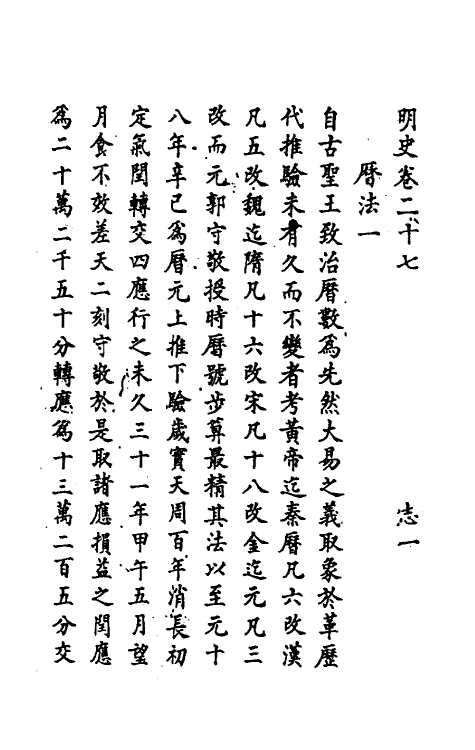 明史卷二十七 志一
曆法一
自古聖王致治曆數爲先然大易之義取象於革歷
代推驗未有久而不變者考黃帝迄秦曆凡六改漢
凡五改魏迄隋凡十六改宋凡十八改金迄元凡三
改而元郭守敬授時曆號步算最精其法以至元十
八年辛巳爲曆元上推下驗歲實天周百年消長初
定氣閏轉交四應行之未久三十一年甲午五月望
月食不效差天二刻守敬於是取諸應損益之閏應
爲二十萬二千五十分轉應爲十三萬二百五分交